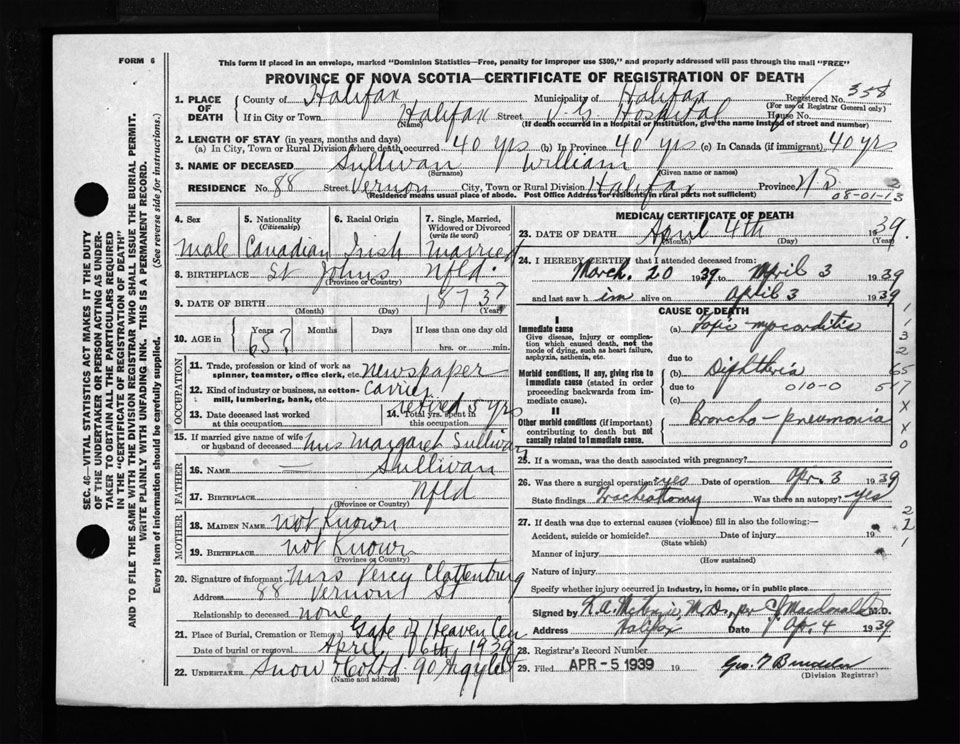 FORM 6
This form if placed in an envelope, marked "Dominion Statistics—Free, penalty for improper use $300," and properly addressed will pass through the mail "FREE"
PROVINCE OF NOVA SCOTIA—CERTIFICATE OF REGISTRATION OF DEATH
1. PLACE OF DEATH
County of Halifax Municipality of Halifax Registered No. 358
(For use of Registrar General only)
If in City or Town Halifax Street V. G. Hospital House No.
(Name) (If death occurred in a hospital or institution, give the name instead of street and number)
2. LENGTH OF STAY (in years, months and days)
(a) In City, Town or Rural Division where death occurred 40 yrs (b) In Province 40 yrs (c) In Canada (if immigrant) 40 yrs
3. NAME OF DECEASED Sullivan William
(Surname) (Given name or names)
RESIDENCE No. 88 Street Vernon City, Town or Rural Division Halifax Province NS
(Residence means usual place of abode. Post Office Address for residents in rural parts not sufficient)
08-01-13
2
4. Sex
male
5. Nationality
(Citizenship)
Canadian
6. Racial Origin
Irish
7. Single, Married, Widowed or Divorced
(write the word)
married
8. BIRTHPLACE St Johns Nfld
(Province or Country)
9. DATE OF BIRTH 1873?
(Month) (Day) (Year)
10. AGE in Years Months Days If less than one day old
65? hrs. or min.
OCCUPATION
11. Trade, profession or kind of work as spinner, teamster, office clerk, etc. newspaper
12. Kind of industry or business, as cotton-mill, lumbering, bank, etc. carrier
13. Date deceased last worked at this occupation
14. Total yrs. spent in this occupation
retired 5 yrs
15. If married give name of wife or husband of deceased Mrs Margaret Sullivan
FATHER
16. NAME — Sullivan
17. BIRTHPLACE Nfld
MOTHER
18. MAIDEN NAME not known
19. BIRTHPLACE not known
(Province or Country)
20. Signature of informant Mrs Percy Clattenburg
Address 88 Vernon St
Relationship to deceased none
21. Place of Burial, Cremation or Removal Gate of Heaven Cem
Date of burial or removal April 6th, 1939
22. UNDERTAKER Snow & Co Ltd 90 Argyle St
(Name and address)
MEDICAL CERTIFICATE OF DEATH
23. DATE OF DEATH April 4th 1939.
(Month) (Day) (Year)
24. I HEREBY CERTIFY that I attended deceased from:
March. 20 1939 to April 3 1939
and last saw him alive on April 3 1939
I
Immediate cause
Give disease, injury or complication which caused death, not the mode of dying, such as heart failure, asphyxia, asthenia, etc.
Morbid conditions, if any, giving rise to immediate cause (stated in order proceeding backwards from immediate cause).
II
Other morbid conditions (if important) contributing to death but not causally related to immediate cause.
CAUSE OF DEATH
(a) Toxic myocarditis
due to
(b) Diphtheria
due to 010-0
(c)
Broncho-pneumonia
25. If a woman, was the death associated with pregnancy?
26. Was there a surgical operation yes Date of operation Apr. 3 1939
State findings Tracheotomy Was there an autopsy? yes
27. If death was due to external causes (violence) fill in also the following:—
Accident, suicide or homicide? Date of injury 19
(State which)
Manner of injury
(How sustained)
Nature of injury
Specify whether injury occurred in industry, in home, or in public place
Signed by K. A. McKenzie, M.D., per C J Macdonald M.D.
Address Halifax Date Apr. 4 1939
28. Registrar's Record Number
29. Filed APR - 5 1939 19
(Division Registrar)
SEC. 46—VITAL STATISTICS ACT MAKES IT THE DUTY OF THE UNDERTAKER OR PERSON ACTING AS UNDERTAKER TO OBTAIN ALL THE PARTICULARS REQUIRED IN THE "CERTIFICATE OF REGISTRATION OF DEATH" AND TO FILE THE SAME WITH THE DIVISION REGISTRAR WHO SHALL ISSUE THE BURIAL PERMIT.
WRITE PLAINLY WITH UNFADING INK. THIS IS A PERMANENT RECORD.
Every item of information should be carefully supplied. (See reverse side for instructions.)